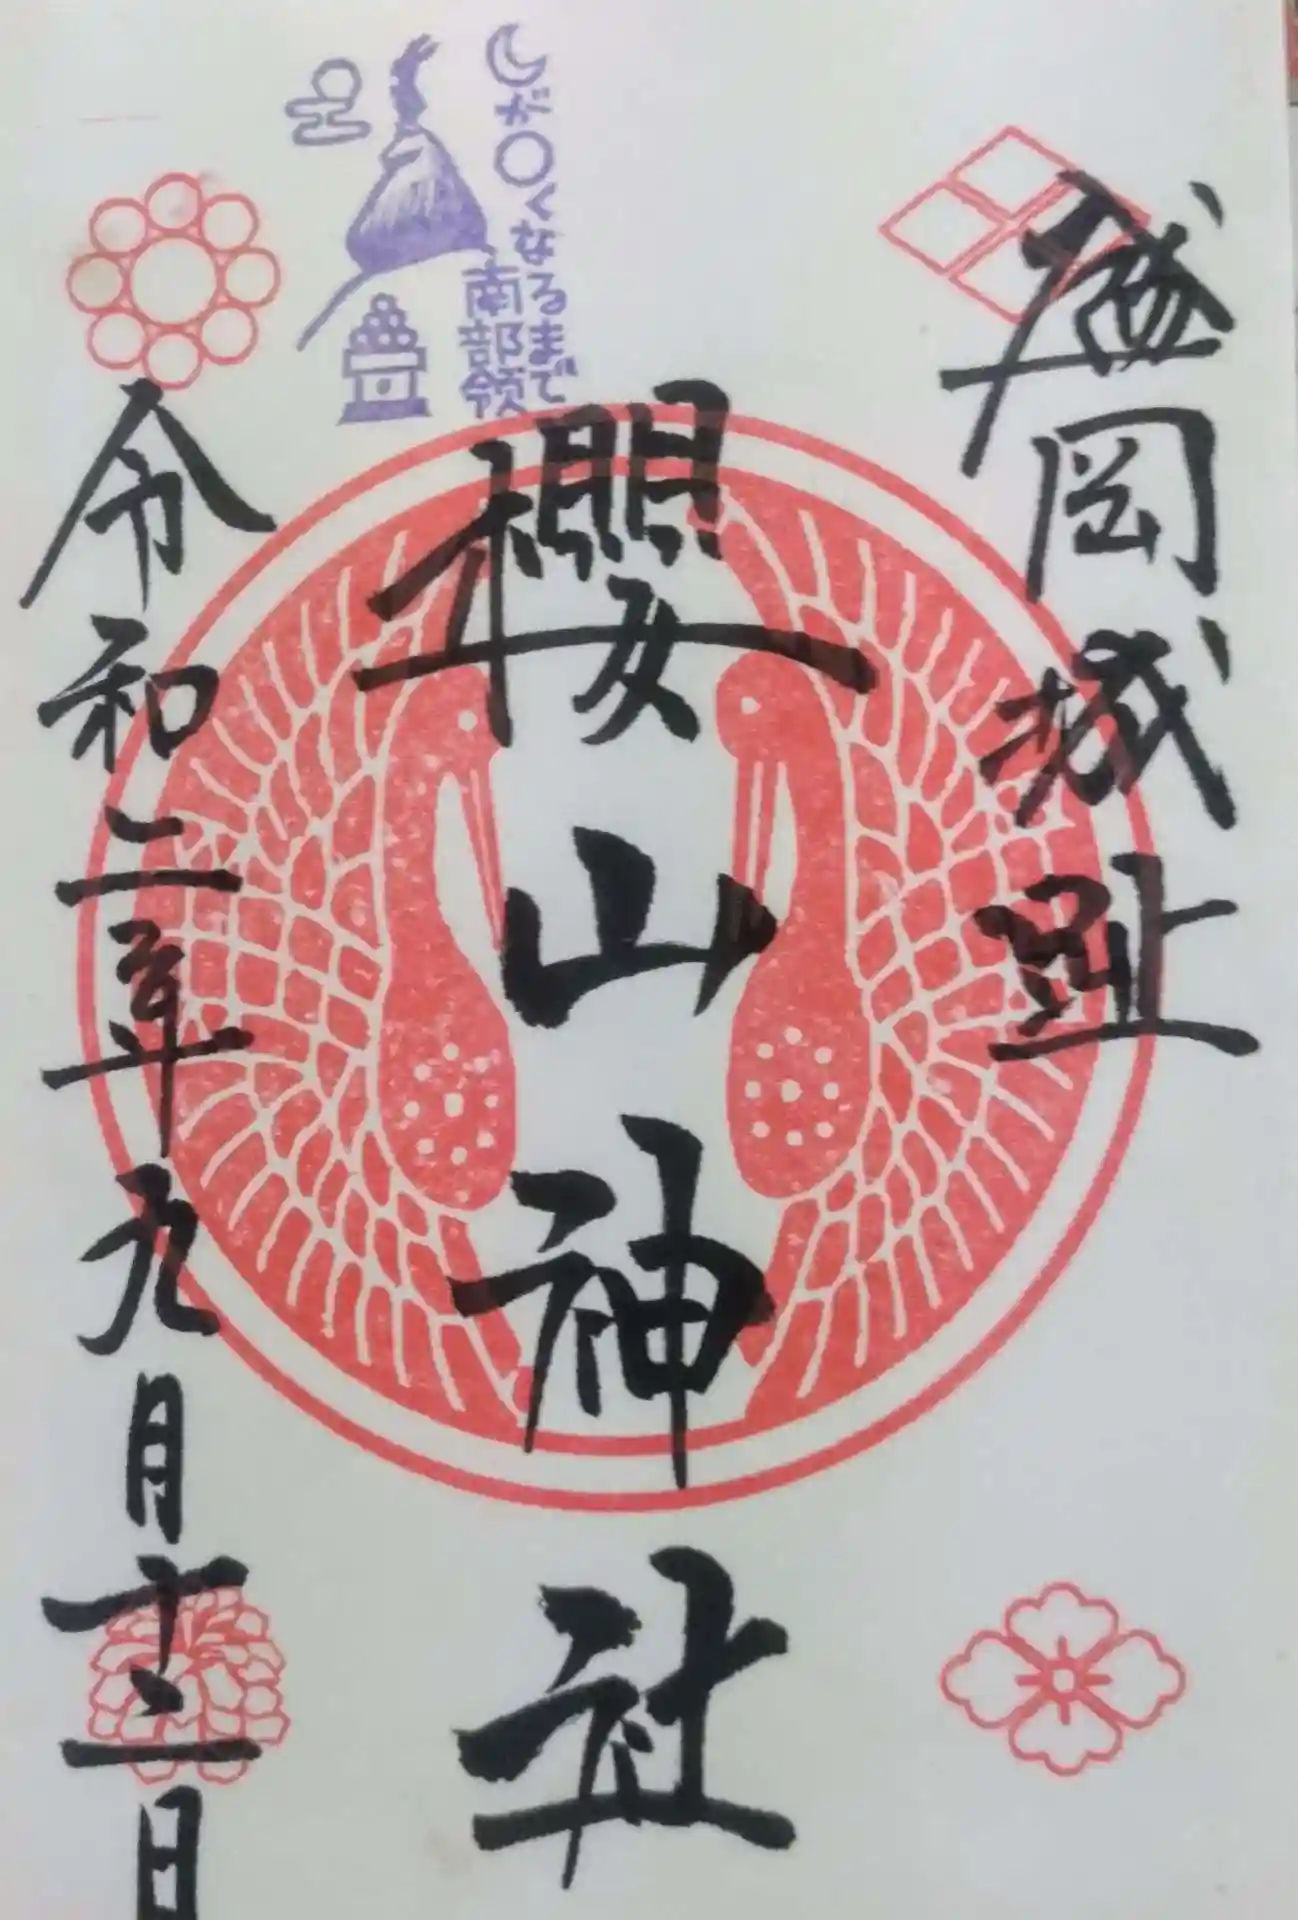 盛岡城址
櫻山神社
が〇くなるまで
南部領
令和二年九月十二日